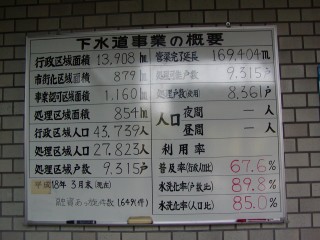 下水道事業の概要
行政区域面積 13,908 ha
市街化区域面積 879 ha
事業認可区域面積 1,160 ha
処理区域面積 854 ha
行政区域人口 43,739人
処理区域人口 27,823人
処理区域戸数 9,315戸
平成18年3月末(現在)
1,649(件)
管渠完了延長 169,404m
9,315戸
処理戸数(使用) 8,361戸
人口 夜間 ー人
昼間 ー人
利用率
普及率(行政人口比) 67.6%
水洗化率(戸数比) 89.8%
水洗化率(人口比) 85.0%